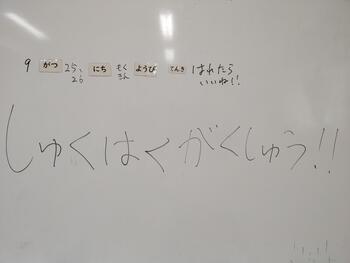 9 がつ 25、 にち もく ようび てんき はれたら
26 きん いいね!!
しゅくはくがくしゅう!!